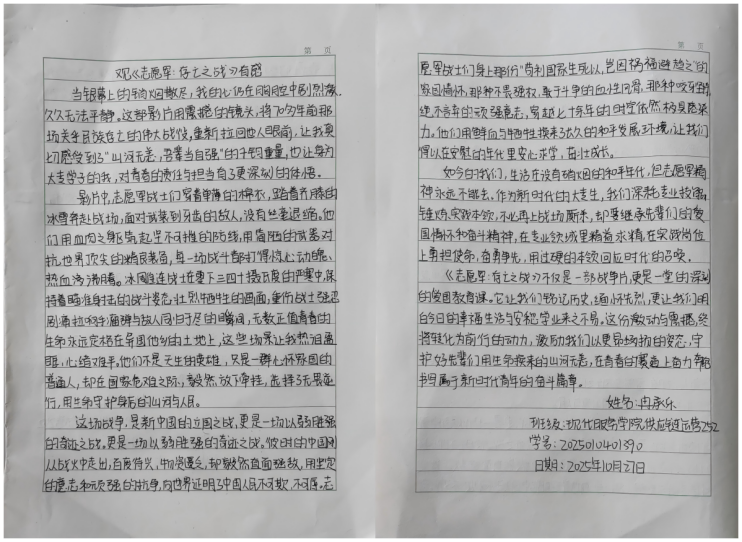 第 页
观《志愿军:存亡之战》有感
当银幕上的硝烟散尽,我的心仍在胸腔中剧烈激荡,
久久无法平静。这部影片用震撼的镜头,将70多年前那
场关乎民族存亡的伟大战役,重新拉回世人眼前,让我真
切感受到了“山河无恙,吾辈当自强”的千钧重量,也让身为
大专学子的我,对青春的责任与担当有了更深刻的体悟。
影片中,志愿军战士们穿着单薄的棉衣,踏着齐膝的
冰雪奔赴战场,面对武装到牙齿的敌人,没有丝毫退缩。他
们用血肉之躯筑起坚不可摧的防线,用简陋的武器对
抗世界顶尖的精良装备,每一场战斗都打得惊心动魄、
热血沸腾。冰雕连战士在零下三四十摄氏度的严寒中,保
持着瞄准射击的战斗姿态壮烈牺牲的画面,重伤战士强忍
剧痛拉响手榴弹与敌人同归于尽的瞬间,无数正值青春的
生命永远定格在异国他乡的土地上,这些场景让我热泪盈
眶,心绪难平。他们不是天生的英雄,只是一群心怀家国的
普通人,却在国家危难之际,毅然放下牵挂,选择了无畏逆
行,用生命守护身后的山河与人民。
这场战争,是新中国的立国之战,更是一场以弱胜强
的奇迹之战。更是一场以弱胜强的奇迹之战。彼时的中国刚
从战火中走出,百废待兴,物资匮乏,却毅然直面强敌,用坚定
的意志和顽强的抗争,向世界证明了中国人民不可欺、不可辱。志
第 页
愿军战士们身上那份“苟利国家生死以,岂因祸福避趋之”的
家国情怀,那种不畏强权、敢于斗争的血性风骨,那种咬牙坚持、
绝不言弃的顽强意志,穿越七十余年的时空依然极具感染
力。他们用鲜血与牺牲换来了长久的和平发展环境,让我们
得以在安稳的年代里安心求学,奋壮成长。
如今的我们,生活在没有硝烟的和平年代,但志愿军精
神永远不褪去。作为新时代的大专生,我们深耕专业技能、
锤炼实践本领,不必再上战场厮杀,却要继承先辈们的爱
国情怀和奋斗精神,在专业领域里精益求精,在实战岗位
上勇担使命、奋勇争先,用过硬的本领回应时代的召唤。
《志愿军:存亡之战》不仅是一部战争片,更是一堂的深刻
的爱国教育课。它让我们铭记历史、缅怀先烈,更让我们明
白今日的幸福生活与安稳学业来之不易。这份激动与震撼,终
将转化为前行的动力,激励我们以更昂扬的姿态,守
护好先辈们用生命换来的山河无恙,在青春的赛道上奋力奔跑
书写属于新时代青年的奋斗篇章。
姓名:冉承乐
班级:现代服务学院供应链运营252
学号:2025010401390
日期:2025年10月27日